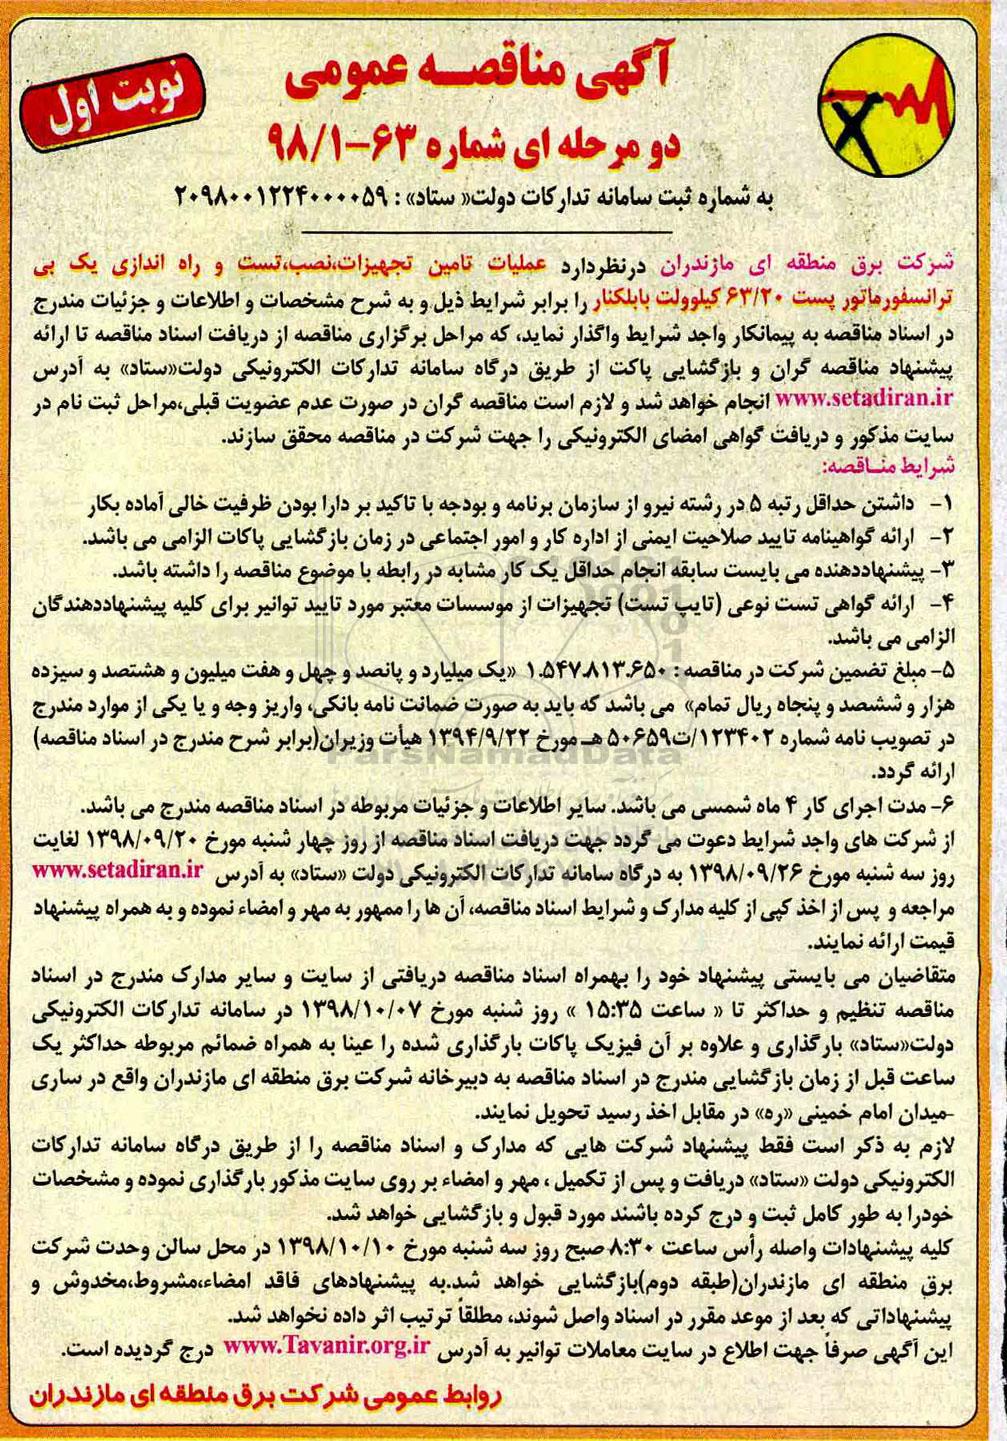 آگهی مناقصه عمومی
نوبت اول
دو مرحله ای شماره ۶۳-۹۸/۱
به شماره ثبت سامانه تدارکات دولت« ستاد» : ۲۰۹۸۰۰۱۲۲۴۰۰۰۰۵۹
شرکت برق منطقه ای مازندران درنظردارد عملیات تامین تجهیزات،نصب،تست و راه اندازی یک بی
ترانسفورماتور پست ۶۳/۲۰ کیلوولت بابلکنار را برابر شرایط ذیل و به شرح مشخصات و اطلاعات و جزئیات مندرج
در اسناد مناقصه به پیمانکار واجد شرایط واگذار نماید، که مراحل برگزاری مناقصه از دریافت اسناد مناقصه تا ارائه
پیشنهاد مناقصه گران و بازگشایی پاکت از طریق درگاه سامانه تدارکات الکترونیکی دولت«ستاد» به آدرس
www.setadiran.ir انجام خواهد شد و لازم است مناقصه گران در صورت عدم عضویت قبلی،مراحل ثبت نام در
سایت مذکور و دریافت گواهی امضای الکترونیکی را جهت شرکت در مناقصه محقق سازند.
شرایط مناقصه:
۱- داشتن حداقل رتبه ۵ در رشته نیرو از سازمان برنامه و بودجه با تاکید بر دارا بودن ظرفیت خالی آماده بکار
۲- ارائه گواهینامه تایید صلاحیت ایمنی از اداره کار و امور اجتماعی در زمان بازگشایی پاکات الزامی می باشد.
۳- پیشنهاددهنده می بایست سابقه انجام حداقل یک کار مشابه در رابطه با موضوع مناقصه را داشته باشد.
۴- ارائه گواهی تست نوعی (تایپ تست) تجهیزات از موسسات معتبر مورد تایید توانیر برای کلیه پیشنهاددهندگان
الزامی می باشد.
۵- مبلغ تضمین شرکت در مناقصه : ۱.۵۴۷.۸۱۳.۶۵۰ «یک میلیارد و پانصد و چهل و هفت میلیون و هشتصد و سیزده
هزار و ششصد و پنجاه ریال تمام» می باشد که باید به صورت ضمانت نامه بانکی، واریز وجه و یا یکی از موارد مندرج
در تصویب نامه شماره ۱۲۳۴۰۲/ت۵۰۶۵۹ هـ مورخ ۱۳۹۴/۹/۲۲ هیأت وزیران(برابر شرح مندرج در اسناد مناقصه)
ارائه گردد.
ParsNamadData
۶- مدت اجرای کار ۴ ماه شمسی می باشد. سایر اطلاعات و جزئیات مربوطه در اسناد مناقصه مندرج می باشد.
از شرکت های واجد شرایط دعوت می گردد جهت دریافت اسناد مناقصه از روز چهار شنبه مورخ ۱۳۹۸/۰۹/۲۰ لغایت
روز سه شنبه مورخ ۱۳۹۸/۰۹/۲۶ به درگاه سامانه تدارکات الکترونیکی دولت «ستاد» به آدرس www.setadiran.ir
مراجعه و پس از اخذ کپی از کلیه مدارک و شرایط اسناد مناقصه، آن ها را ممهور به مهر و امضاء نموده و به همراه پیشنهاد
قیمت ارائه نمایند.
متقاضیان می بایستی پیشنهاد خود را بهمراه اسناد مناقصه دریافتی از سایت و سایر مدارک مندرج در اسناد
مناقصه تنظیم و حداکثر تا « ساعت ۱۵:۳۵ » روز شنبه مورخ ۱۳۹۸/۱۰/۰۷ در سامانه تدارکات الکترونیکی
دولت«ستاد» بارگذاری و علاوه بر آن فیزیک پاکات بارگذاری شده را عینا به همراه ضمائم مربوطه حداکثر یک
ساعت قبل از زمان بازگشایی مندرج در اسناد مناقصه به دبیرخانه شرکت برق منطقه ای مازندران واقع در ساری
-میدان امام خمینی «ره» در مقابل اخذ رسید تحویل نمایند.
لازم به ذکر است فقط پیشنهاد شرکت هایی که مدارک و اسناد مناقصه را از طریق درگاه سامانه تدارکات
الکترونیکی دولت «ستاد» دریافت و پس از تکمیل ، مهر و امضاء بر روی سایت مذکور بارگذاری نموده و مشخصات
خودرا به طور کامل ثبت و درج کرده باشند مورد قبول و بازگشایی خواهد شد.
کلیه پیشنهادات واصله رأس ساعت ۸:۳۰ صبح روز سه شنبه مورخ ۱۳۹۸/۱۰/۱۰ در محل سالن وحدت شرکت
برق منطقه ای مازندران(طبقه دوم)بازگشایی خواهد شد.به پیشنهادهای فاقد امضاء،مشروط،مخدوش و
پیشنهاداتی که بعد از موعد مقرر در اسناد واصل شوند، مطلقاً ترتیب اثر داده نخواهد شد.
این آگهی صرفاً جهت اطلاع در سایت معاملات توانیر به آدرس www.Tavanir.org.ir درج گردیده است.
روابط عمومی شرکت برق منطقه ای مازندران